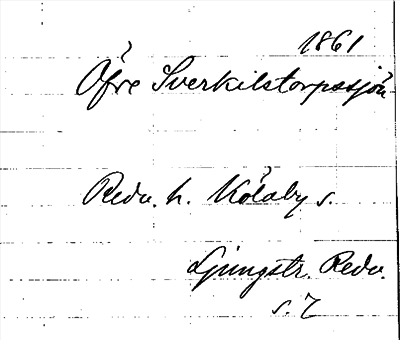 1861
Öfre Sverkilstorpssjön
Redv. h. Kölaby s.
Ljungstr. Redv.
s. 7